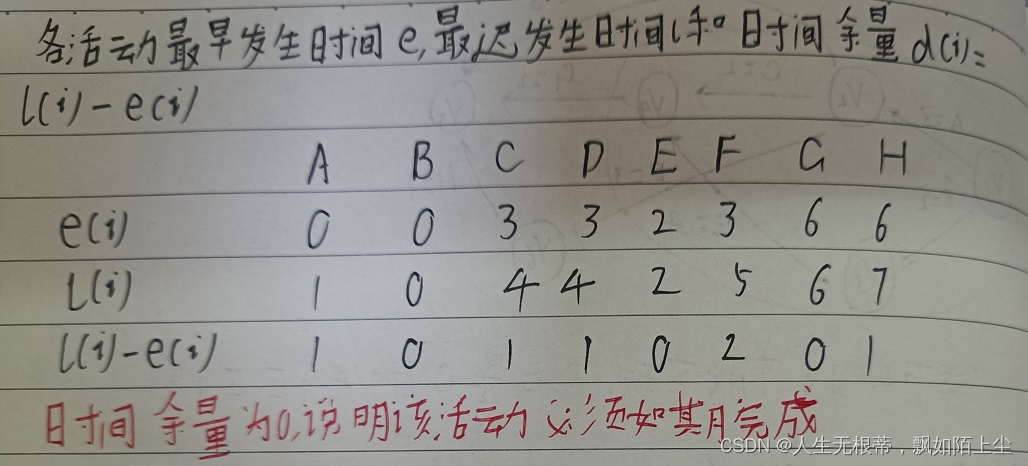 各活动最早发生时间e,最迟发生时间l和时间余量d(i)=
l(i)-e(i)
A B C D E F G H
e(i) 0 0 3 3 2 3 6 6
l(i) 1 0 4 4 2 5 6 7
l(i)-e(i) 1 0 1 1 0 2 0 1
时间余量为0,说明该活动必须如期完成
CSDN @人生无根蒂，飘如陌上尘